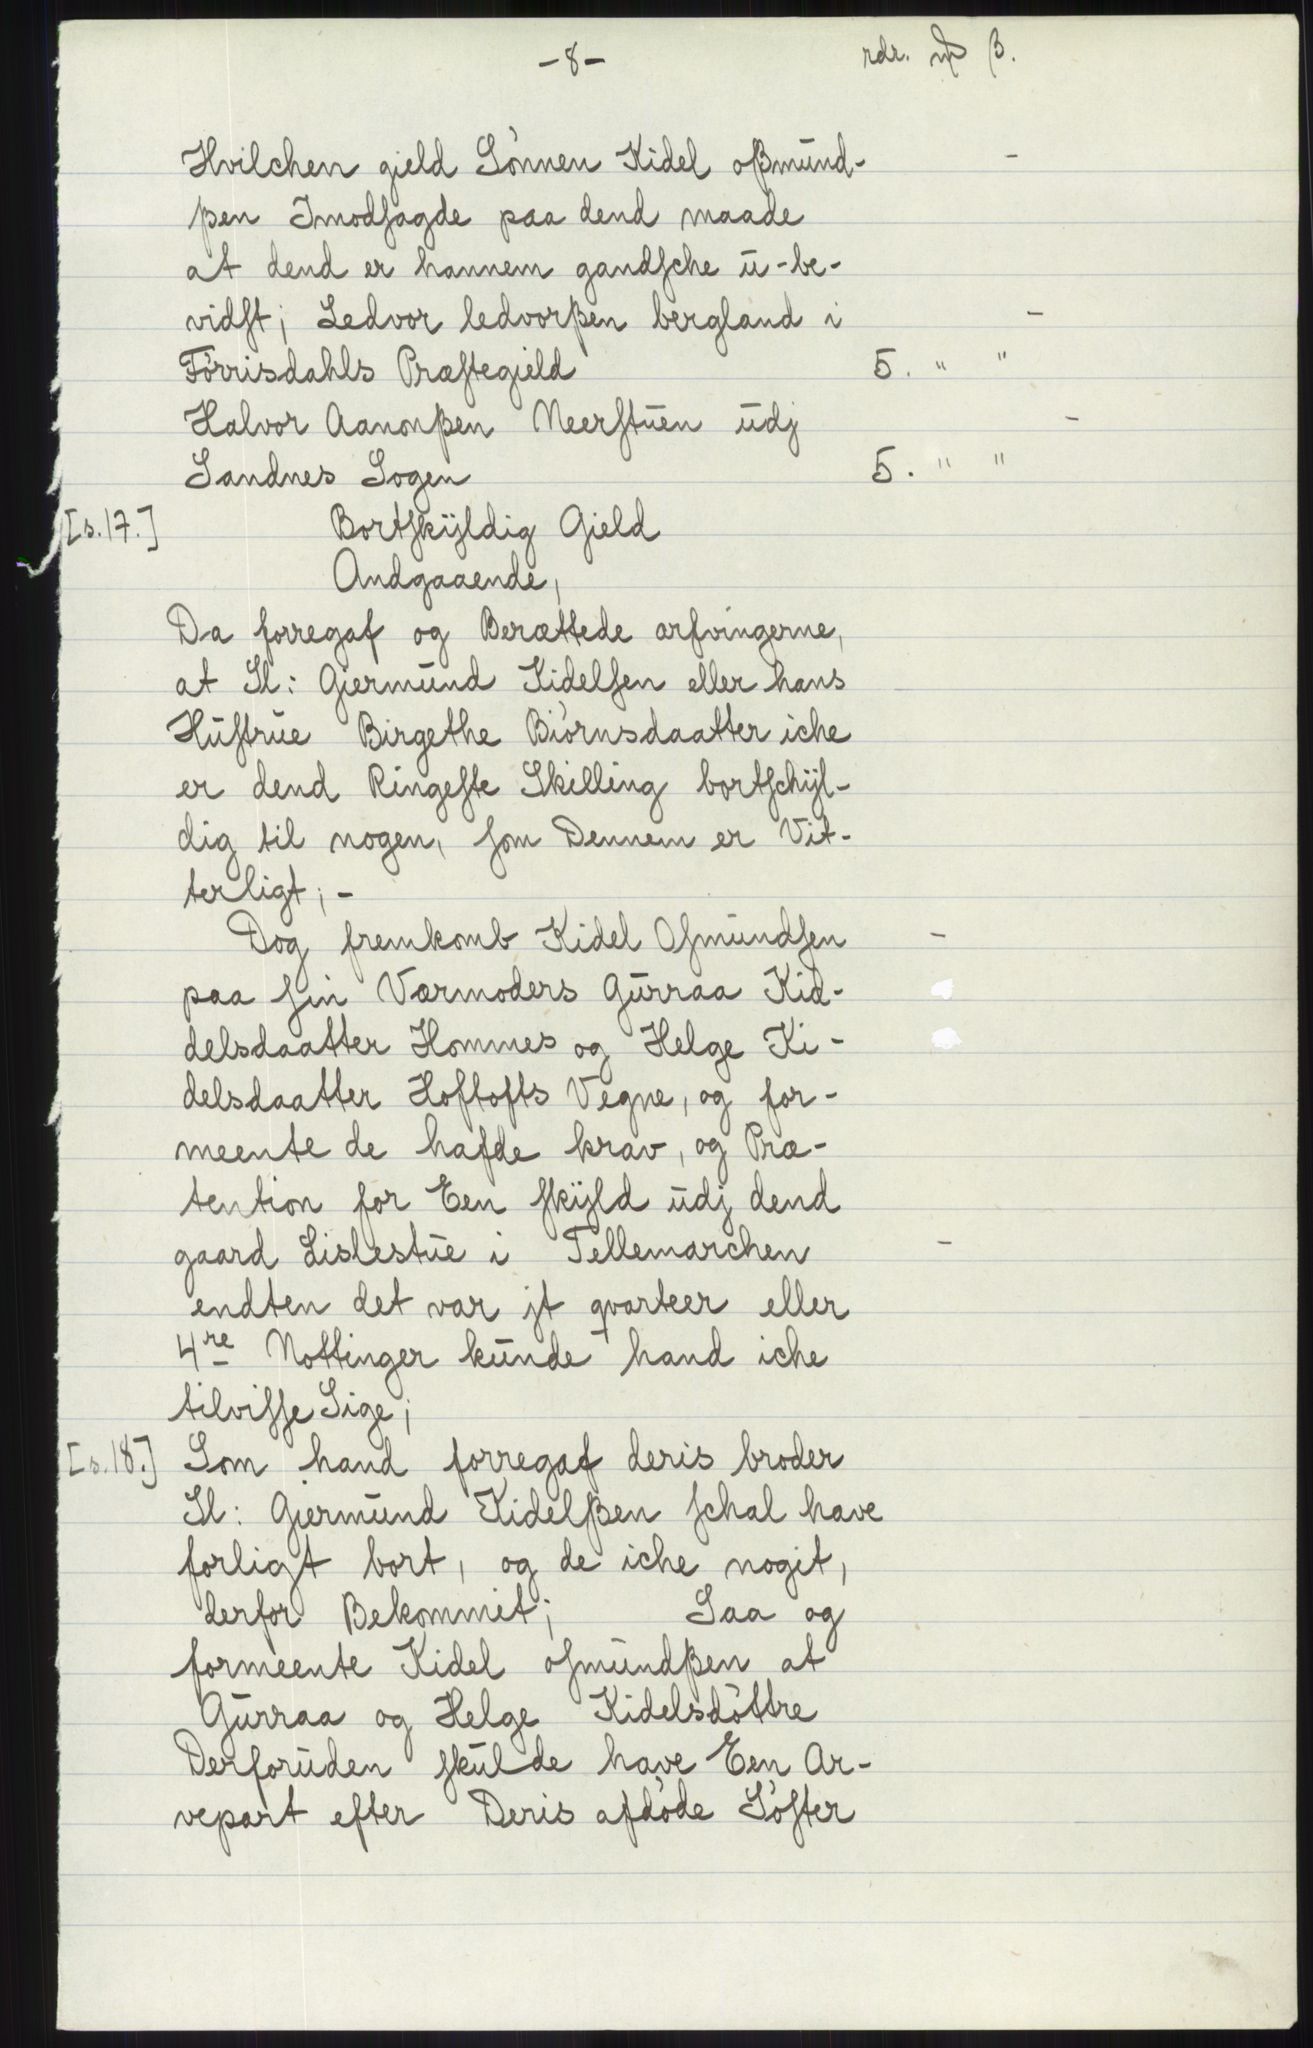 -8- rdr. mk β.
Hvilchen gield Sònnen Kidel oßmünd- -
ßen Jmodſagde paa dend maade
at dend er hannem gandſche ü-be-
vidſt; Ledvor ledvorßen bergland i -
Fòrrisdahls Præſtegield 5. " "
Halvor Aanonßen Neerſtüen üdj -
Sandnes Sogen 5. " "
[s.17.] Bortſkÿldig Gield
Andgaaende,
Da forregaf og Berættede arfvingerne,
at Sl: Giermünd Kidelſen eller hans
Hüſtrüe Birgethe Biòrnsdaatter iche
er dend Ringeſte Skilling bortſchÿl-
dig til nogen, ſom Dennem er Vit-
terligt; -
Dog fremkomb Kidel Oſmündſen -
paa ſin Værmoders Gürraa Kid-
delsdaatter Hommes og Helge Ki-
delsdaatter Hoftofts Vegne, og for-
meente de hafde krav, og Præ-
tention for Een ſkÿld üdj dend
gaard Lislestüe i Tellemarchen -
endten det var jt qvarteer eller
4re Nottinger künde hand iche
tilviſſe Sige;
[s.18.] Som hand forregaf deris broder
Sl: Giermünd Kidelßen ſchal have
forligt bort, og de iche nogit,
derfor Bekommit; Saa og
formeente Kidel oſmündßen at
Gürraa og Helge Kidelsdòttre
Derforüden ſkülde have Een Ar-
vepart efter Deris afdòde Sòſter